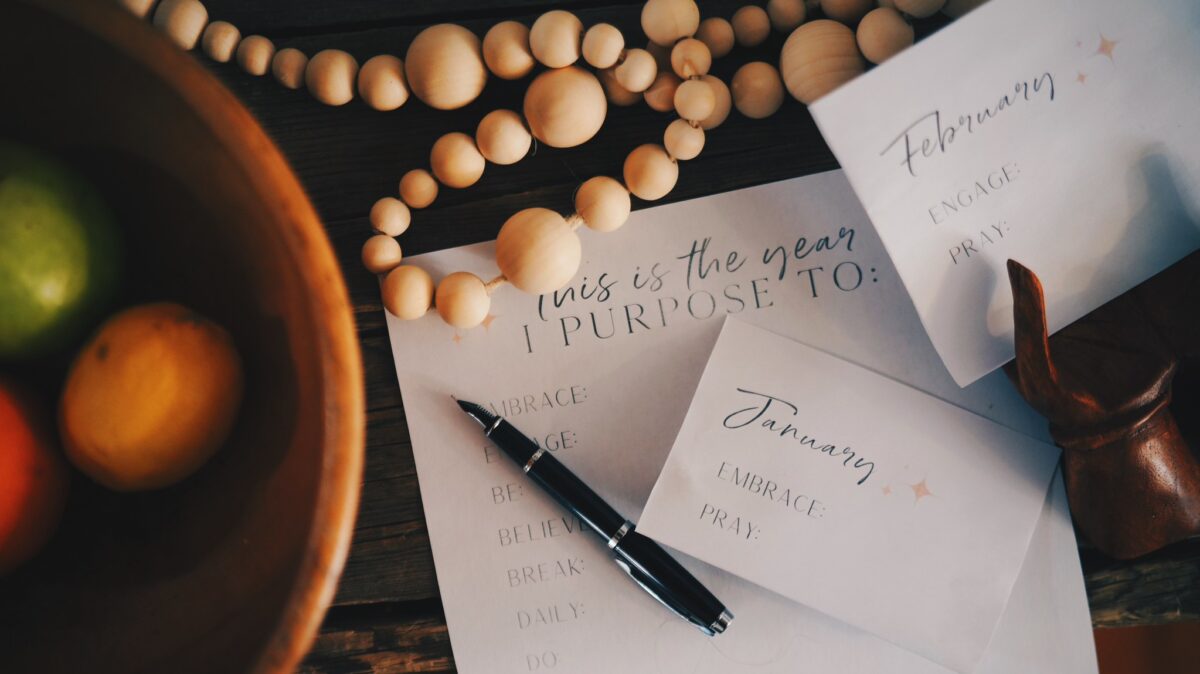 This is the year
I PURPOSE TO:
EMBRACE:
ENGAGE:
BE:
BELIEVE
BREAK:
DAILY:
DO:
January
EMBRACE:
PRAY:
February
ENGAGE:
PRAY: